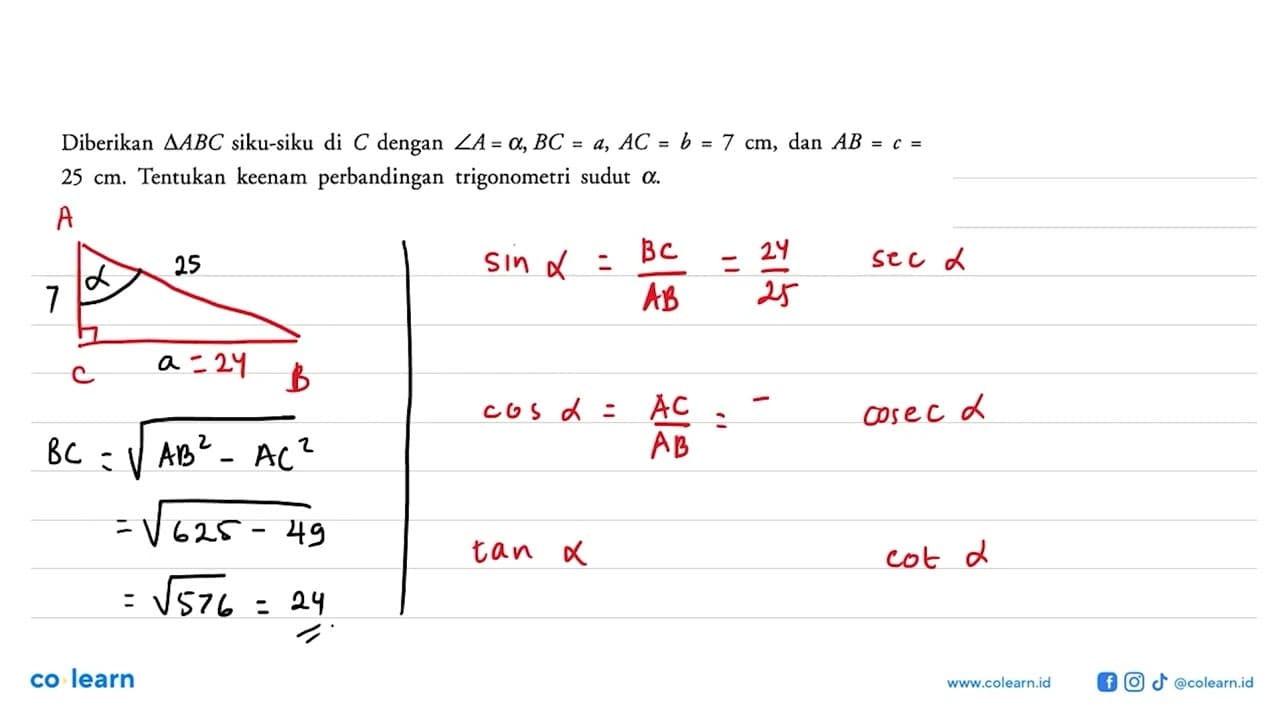 Diberikan ΔABC siku-siku di C dengan ∠A = α, BC = a, AC = b = 7 cm, dan AB = c =
25 cm. Tentukan keenam perbandingan trigonometri sudut α.
A
α
25
7
C
a = 24
B
BC = √AB² - AC²
= √625 - 49
= √576 = 24
sin α = BC/AB = 24/25
sec α
cos α = AC/AB =
cosec α
tan α
cot α
co learn
www.colearn.id
@colearn.id